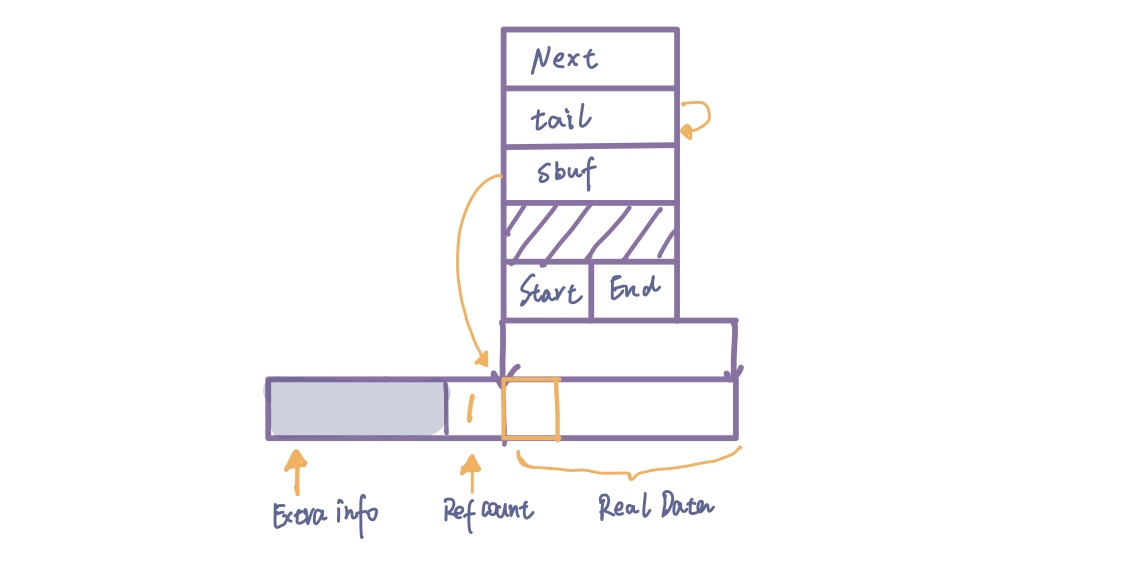 Next
tail
sbuf
Start End
1
Extra info Ref count Real Data